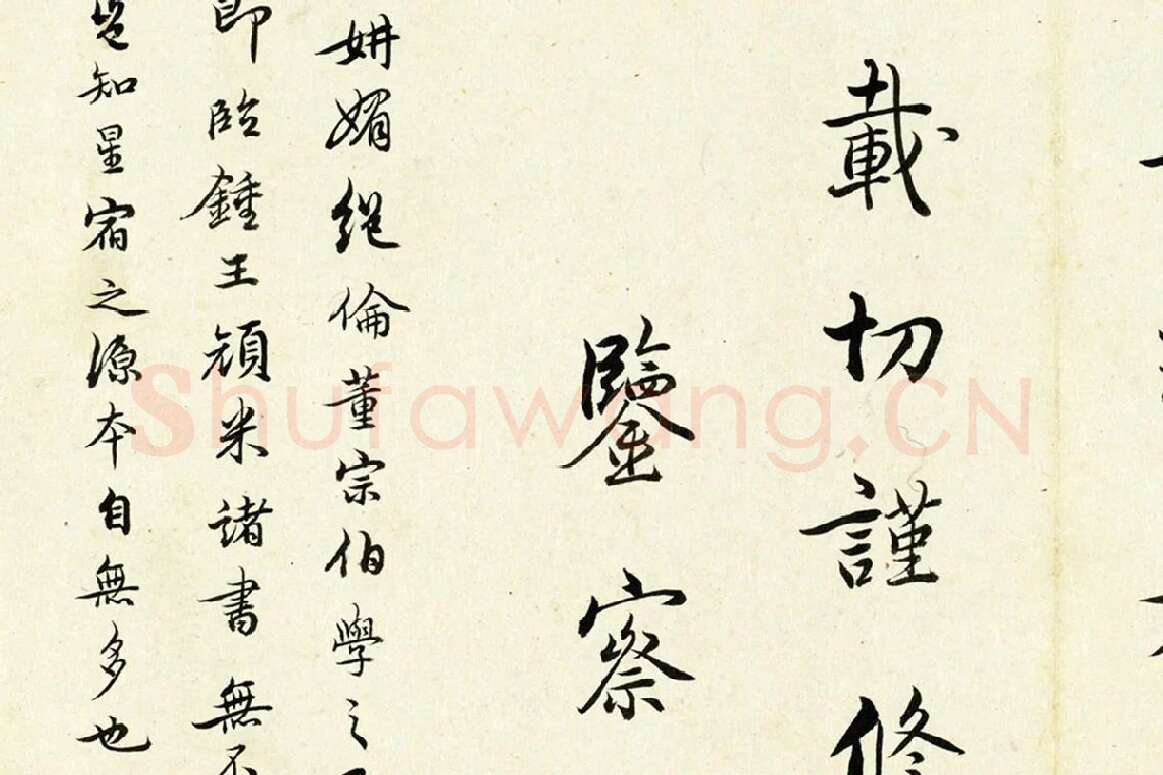 載切謹修
鑒察
妍媚絕倫董宗伯學之
即臨鍾王顏米諸書無不
豈知星宿之源本自無多也
Shufawang.CN